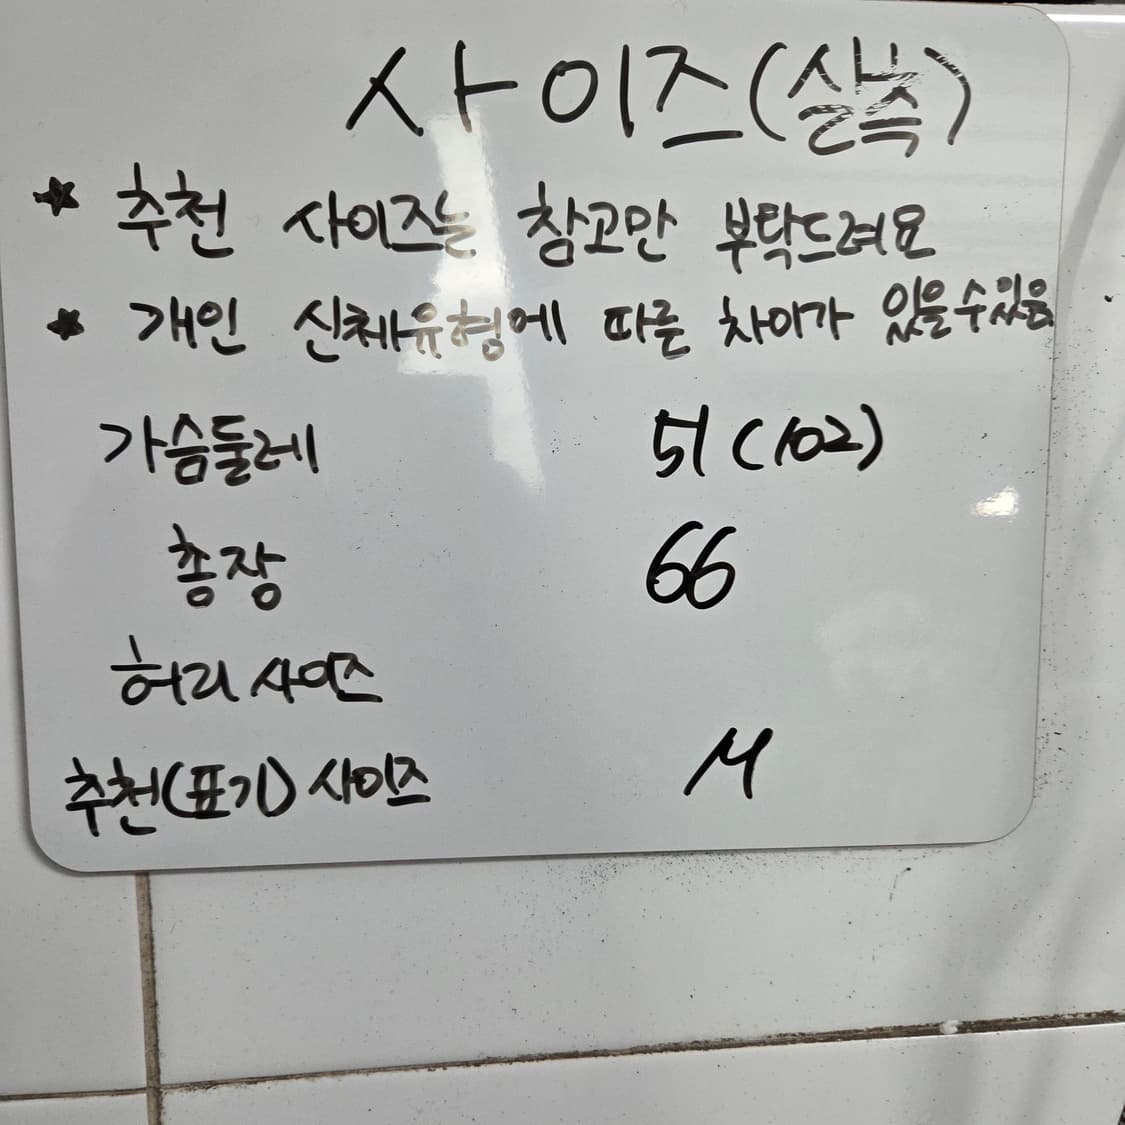 사이즈(실측)
★ 추천 사이즈는 참고만 부탁드려요
★ 개인 신체유형에 따른 차이가 있을수있음.
가슴둘레 51(102)
총장 66
허리 사이즈
추천(표기) 사이즈 M